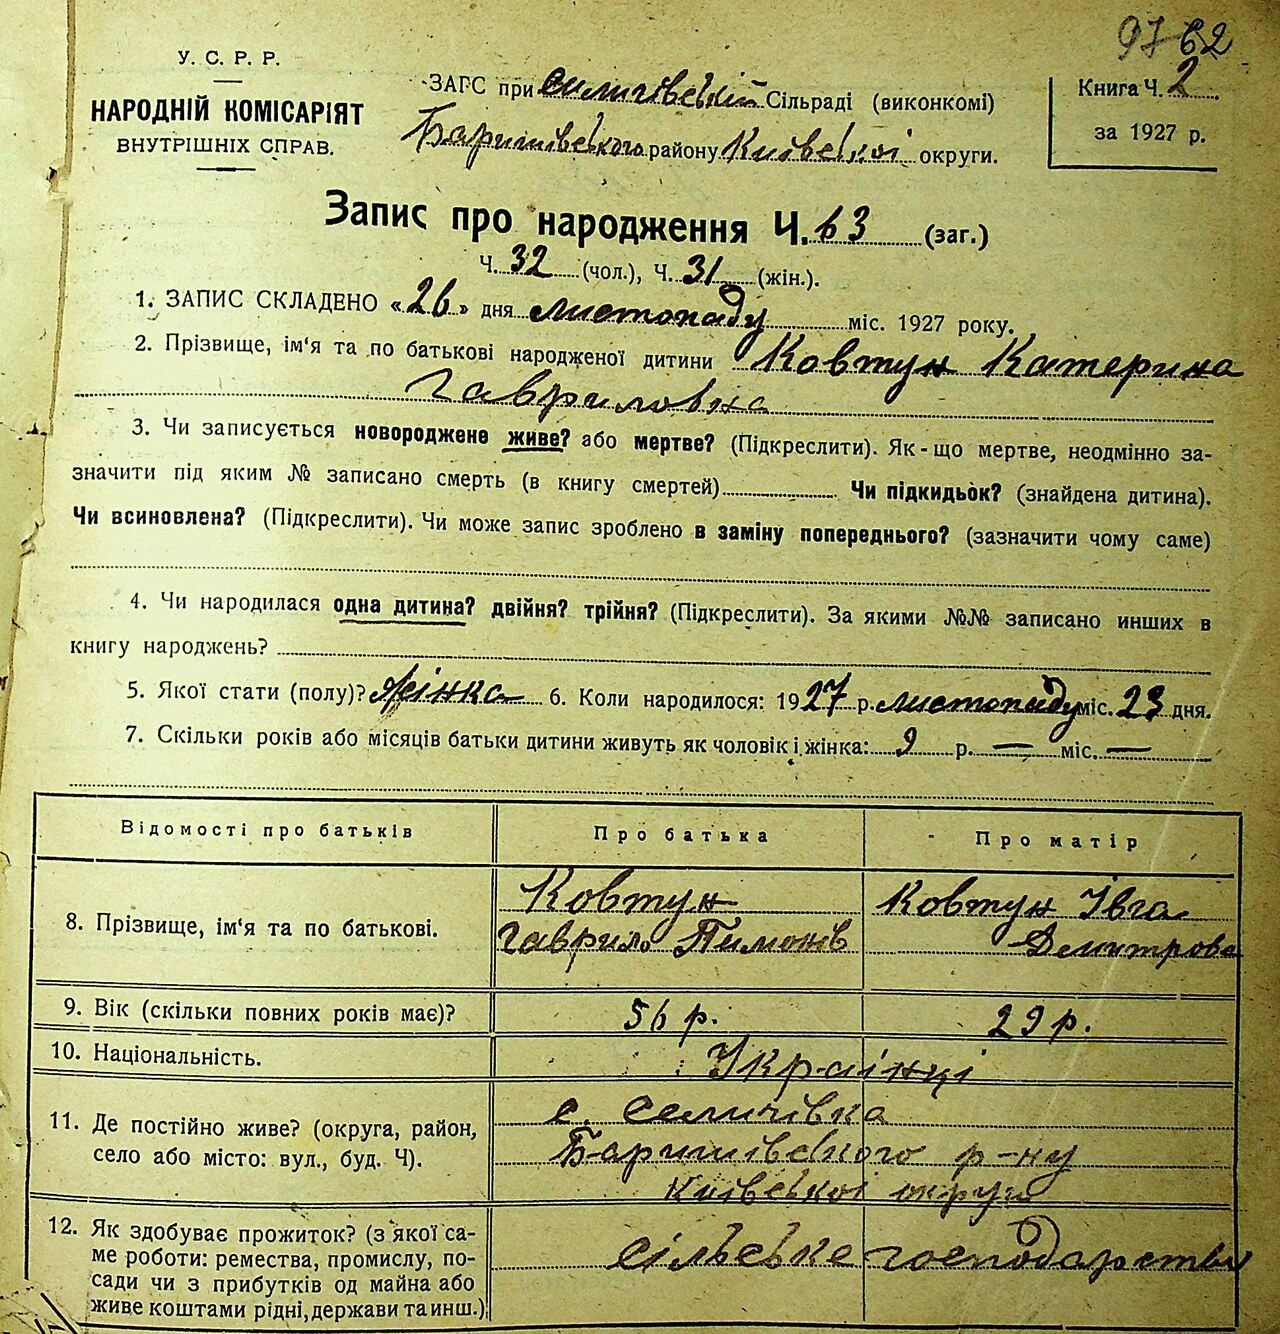 97 62
У. С. Р. Р.
НАРОДНІЙ КОМІСАРІЯТ
ВНУТРІШНІХ СПРАВ.
ЗАГС при Селичівській Сільраді (виконкомі)
Баришівського району Київської округи.
Книга Ч. 2
за 1927 р.
Запис про народження Ч. 63 (заг.)
Ч. 32 (чол.), Ч. 31 (жін.).
1. ЗАПИС СКЛАДЕНО «26» дня листопаду міс. 1927 року.
2. Прізвище, ім'я та по батькові народженої дитини Ковтун Катерина
Гавриловна
3. Чи записується новороджене живе? або мертве? (Підкреслити). Як-що мертве, неодмінно за-
значити під яким № записано смерть (в книгу смертей) Чи підкидьок? (знайдена дитина).
Чи всиновлена? (Підкреслити). Чи може запис зроблено в заміну попереднього? (зазначити чому саме)
4. Чи народилася одна дитина? двійня? трійня? (Підкреслити). За якими №№ записано инших в
книгу народжень?
5. Якої стати (полу)? Жінка 6. Коли народилося: 1927 р. листопаду міс. 23 дня.
7. Скільки років або місяців батьки дитини живуть як чоловік і жінка: 9 р. — міс. —
Відомості про батьків Про батька Про матір
8. Прізвище, ім'я та по батькові.
Ковтун
Гаврило Тимохів
Ковтун Івга
Демитрова
9. Вік (скільки повних років має)? 56 р. 29 р.
10. Національність. Українці
11. Де постійно живе? (округа, район,
село або місто: вул., буд. Ч).
с. Селичівка
Баришівського р-ну
Київської округи
12. Як здобуває прожиток? (з якої са-
ме роботи: ремества, промислу, по-
сади чи з прибутків од майна або
живе коштами рідні, держави та инш.)
сільське господарство